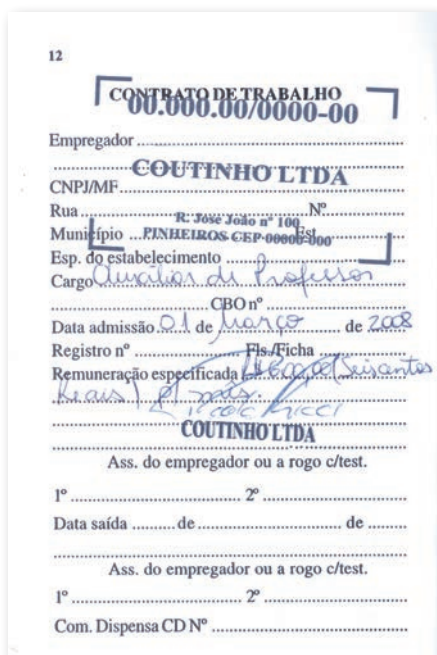 12
CONTRATO DE TRABALHO
00.000.00/0000-00
Empregador
COUTINHO LTDA
CNPJ/MF
Rua Nº
R. José João nº 100
Município Est.
PINHEIROS CEP 00000-000
Esp. do estabelecimento
Cargo Auxiliar de Professor
CBO nº
Data admissão 01 de março de 2008
Registro nº Fls./Ficha
Remuneração especificada (Seiscentos
Reais) p/ mês.
COUTINHO LTDA
Ass. do empregador ou a rogo c/test.
1º 2º
Data saída de de
Ass. do empregador ou a rogo c/test.
1º 2º
Com. Dispensa CD Nº